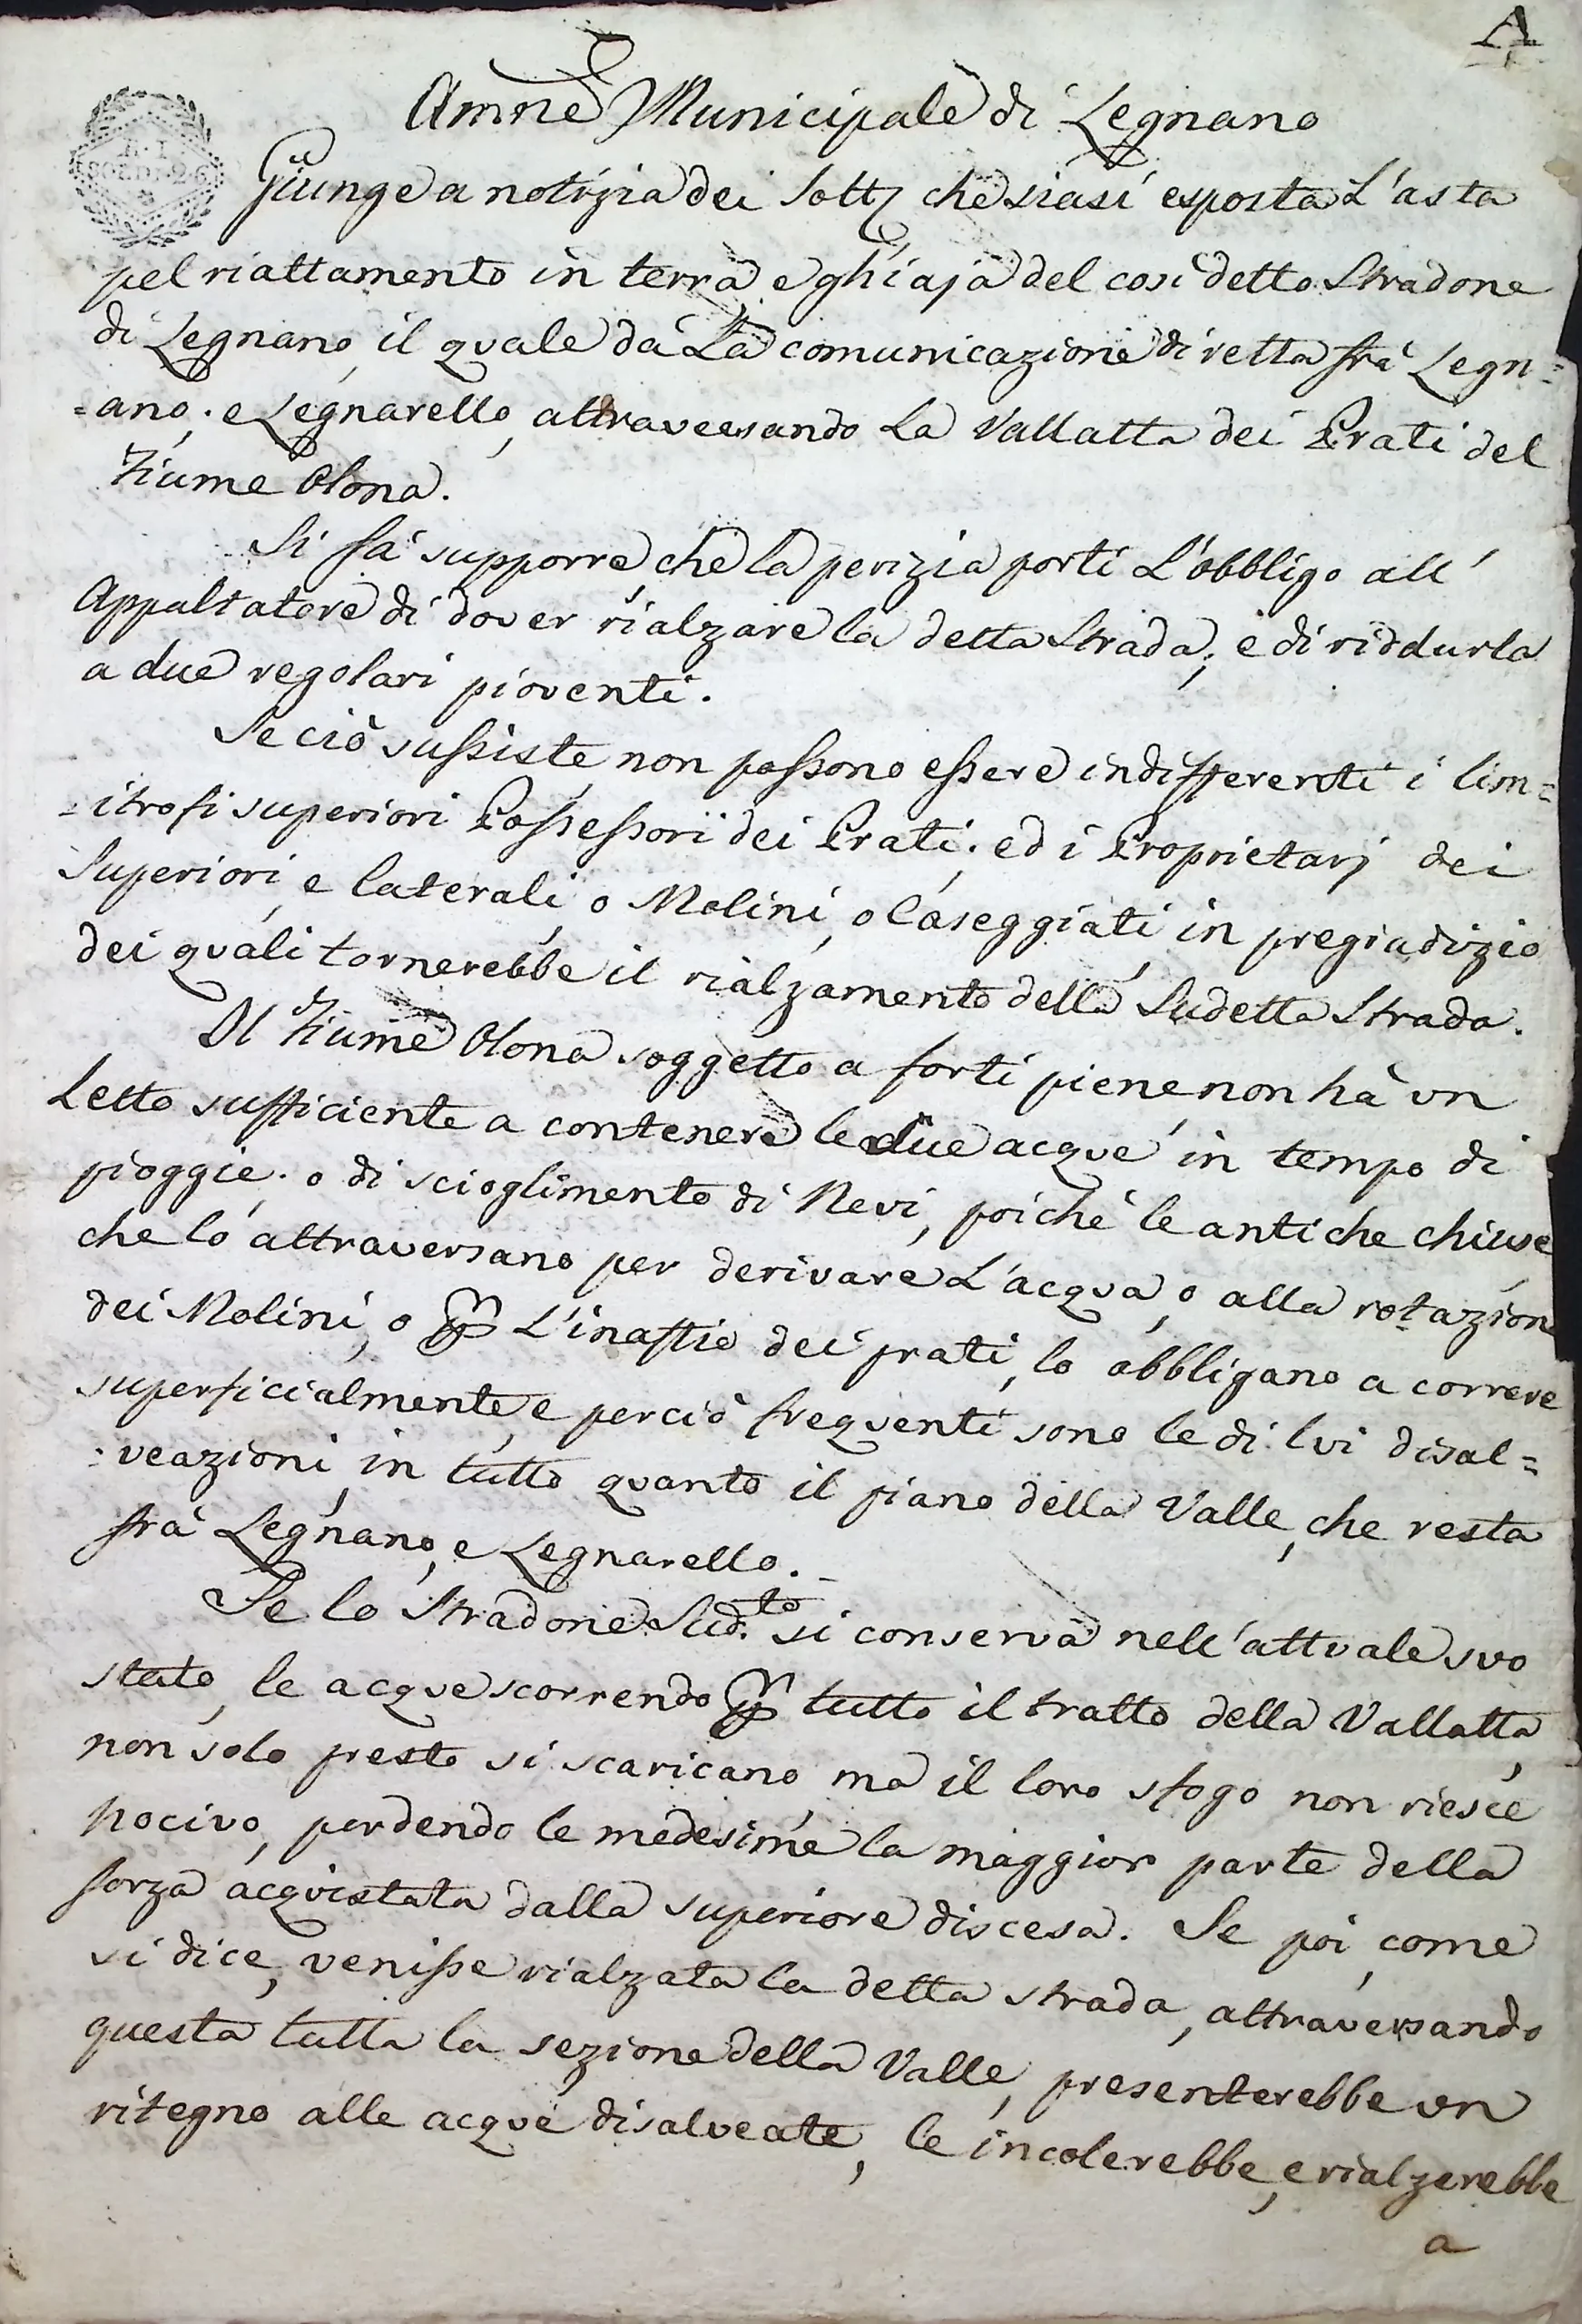 A
Amne Municipale di Legnano
R. I.
SOLDI 26
Giunge a notizia dei Sott. che siasi esposta L'asta
pel riattamento in terra, e ghiaja del così detto Stradone
di Legnano, il quale dà La comunicazione diretta frà Legn=
=ano, e Legnarello, attraversando La Vallatta dei Prati del
Fiume Olona.
Si fà supporre che la perizia porti L'obbligo all'
Appaltatore di dover rialzare la detta Strada, e di riddurla
a due regolari pioventi.
Se ciò sussiste, non possono essere indifferenti i lim=
=itrofi superiori Possessori dei Prati, ed i Proprietarj dei
Superiori, e laterali, o Molini, o Caseggiati, in pregiudizio
dei quali tornerebbe il rialzamento della Sudetta Strada.
Il Fiume Olona soggetto a forti piene non hà un
Letto sufficiente a contenere le due acque in tempo di
pioggie, o di scioglimento di Nevi, poichè le antiche chiuse
che lo attraversano per derivare L'acqua, o alla rotazion
dei Molini, o per L'inaffio dei prati, lo obbligano a correre
superficialmente, e perciò frequenti sono le di lui disal=
=veazioni, in tutto quanto il piano della Valle, che resta
frà Legnano, e Legnarello.
Se lo Stradone Sud.to si conserva nell'attuale suo
stato, le acque scorrendo per tutto il tratto della Vallatta,
non solo presto si scaricano, ma il loro sfogo non riesce
nocivo, perdendo le medesime la maggior parte della
forza acquistata dalla superiore discesa. Se poi, come
si dice, venisse rialzata la detta strada, attraversando
questa tutta la sezione della Valle, presenterebbe un
ritegno alle acque disalveate, le incolerebbe, e rialzerebbe
a